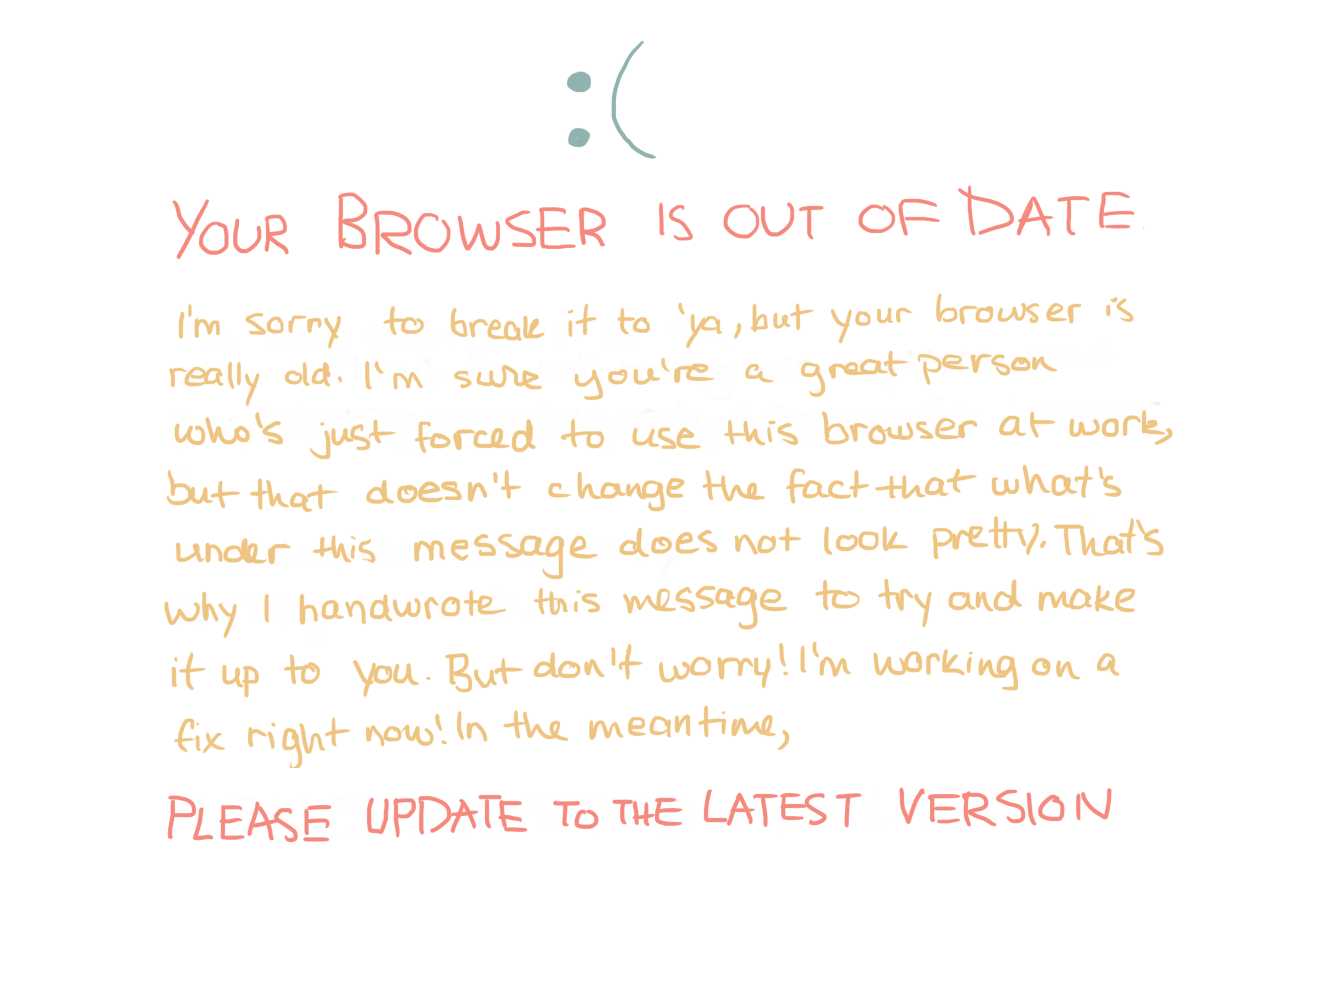 :(
YOUR BROWSER IS OUT OF DATE
I'm sorry to break it to 'ya, but your browser is
really old. I'm sure you're a great person
who's just forced to use this browser at work,
but that doesn't change the fact that what's
under this message does not look pretty. That's
why I handwrote this message to try and make
it up to you. But don't worry! I'm working on a
fix right now! In the meantime,
PLEASE UPDATE TO THE LATEST VERSION